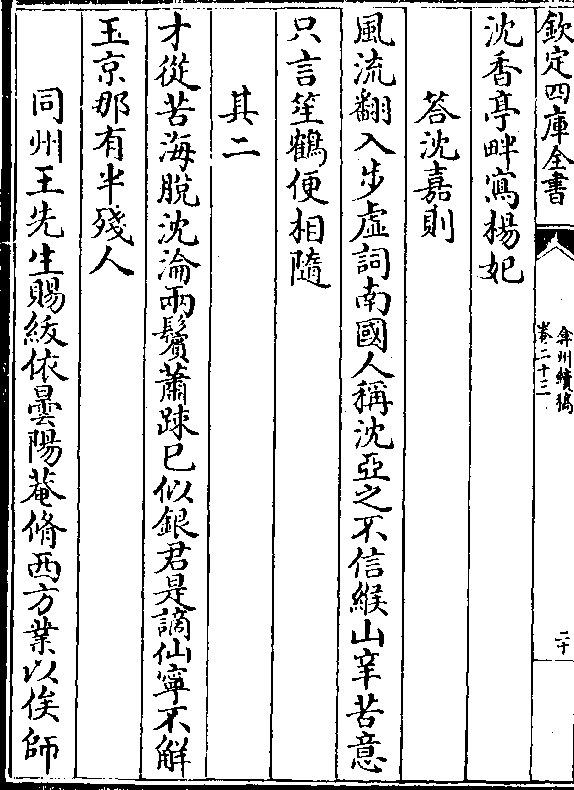 欽定四庫全書
弇州續稿
卷二十三
二十
沈香亭畔寫楊妃
答沈嘉則
風流翻入步虛詞南國人稱沈亞之不信緱山辛苦意
只言笙鶴便相隨
其二
才從苦海脫沈淪兩鬢蕭踈已似銀君是謫仙寧不解
玉京那有半殘人
同州王先生賜紱依曇陽菴脩西方業以俟師